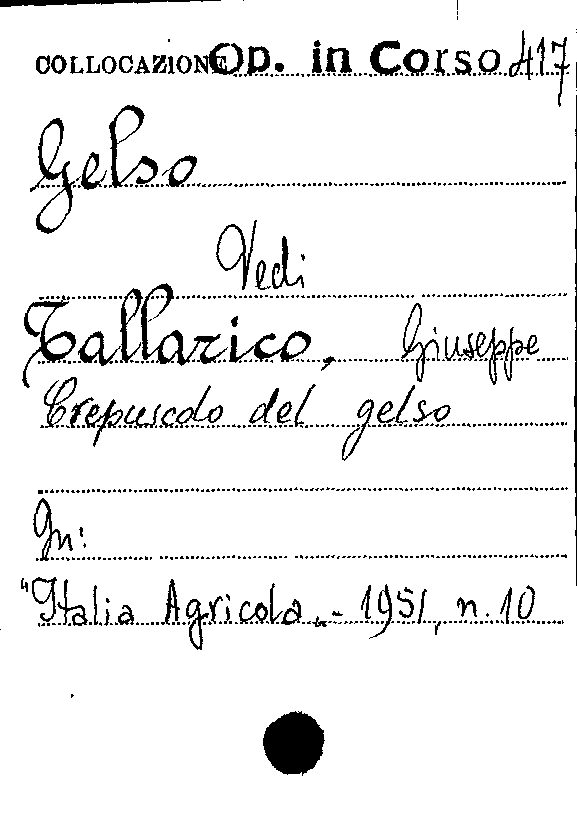 COLLOCAZIONE Op. in Corso 417
Gelso
Vedi
Tallarico, Giuseppe
Crepuscolo del gelso
In:
"Italia Agricola„ - 1951, n. 10